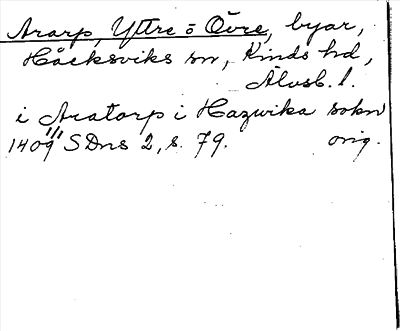 Ararp, Yttre o Övre, byar,
Håcksviks sn, Kinds hd,
Älvsb. l.
i Aratorp i Hazwika sokn
1409 1/11 SDns 2, s. 79. orig.